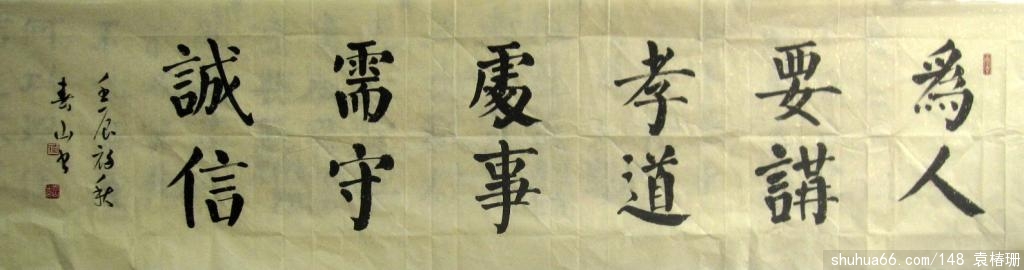 爲人
要講
孝道
處事
需守
誠信
壬辰初秋
春山書
shuhua66.com/148 袁椿珊